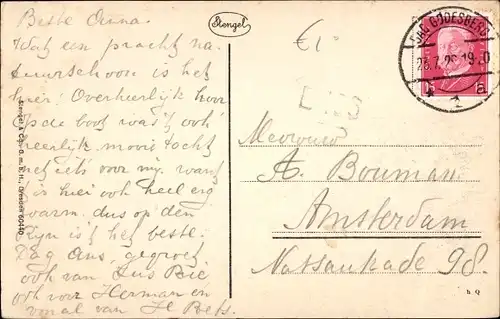 Beste Anna.
Wat een pracht na-
tuurschoon is het
hier. Overheerlijk hoor
Op de boot was't ook
heerlijk, mooie tocht
net iets voor mij. want
't is hier ook heel erg
warm. dus op den
Rijn is 't het beste.
Dag Ans, gegroet
ook van Zus Rie
ook voor Herman en
vooral van H
Stengel
Stengel & Co., G. m. b. H., Dresden 60440
BAD GODESBERG
15
a
Mevrouw
A. Bouman
Amsterdam
Nassaukade 98.